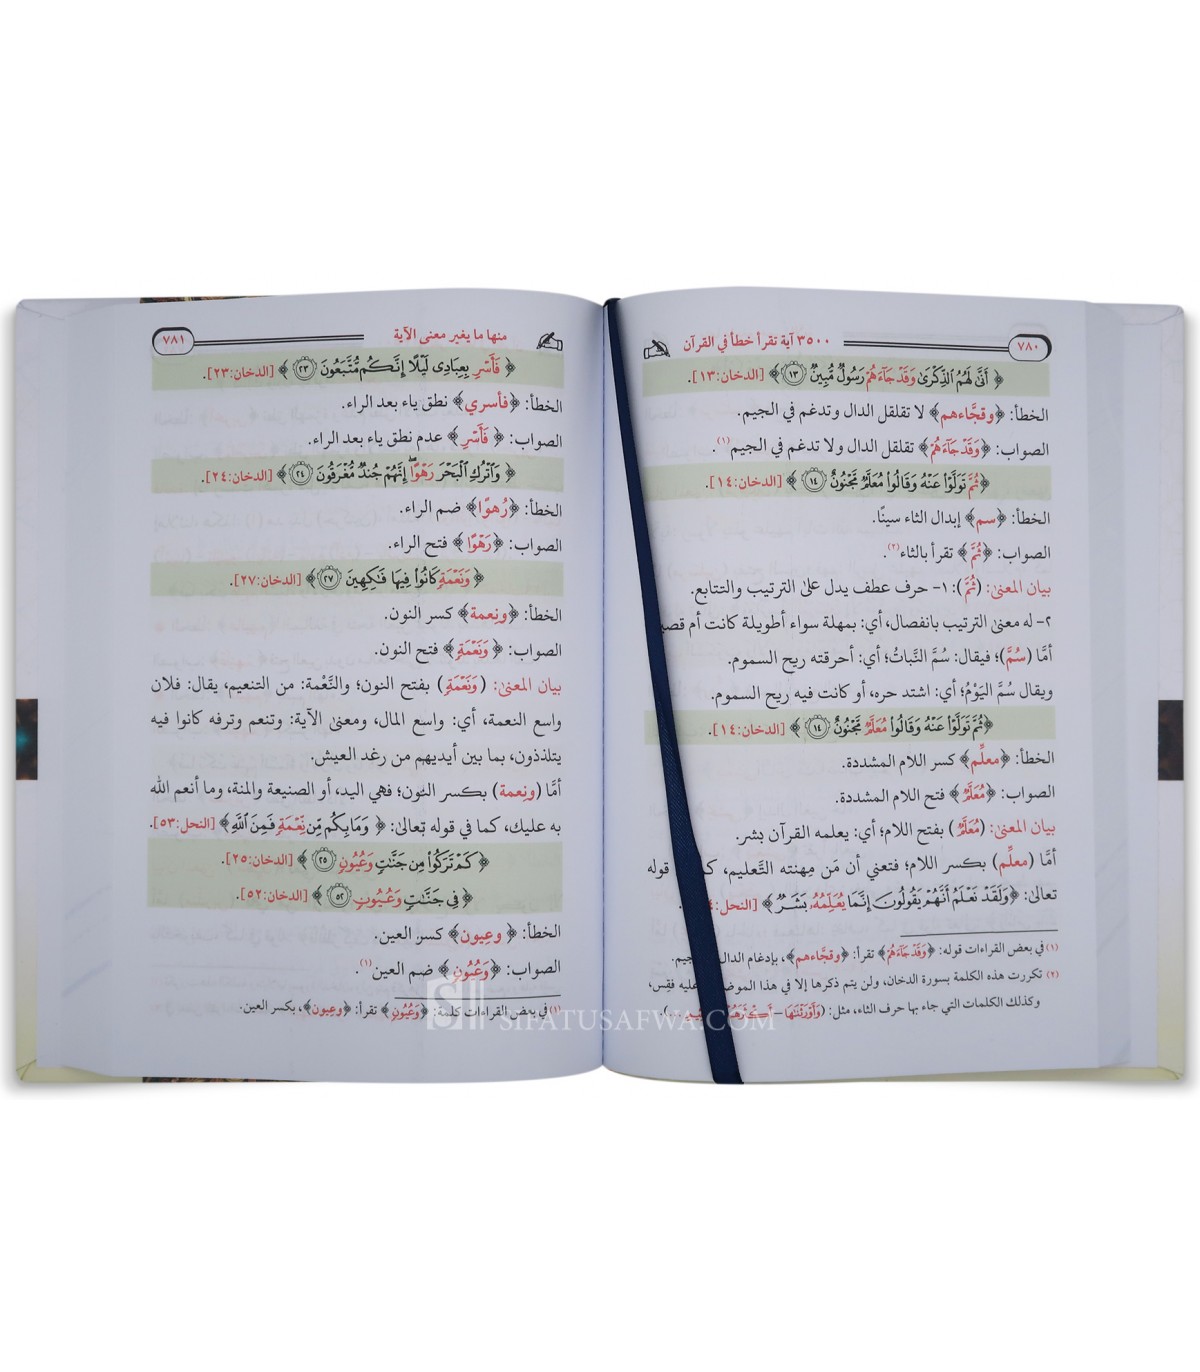 ٧٨٠ ٣٥٠٠ آية تقرأ خطأ في القرآن
﴿ أَنَّىٰ لَهُمُ ٱلذِّكْرَىٰ وَقَدْ جَآءَهُمْ رَسُولٌ مُّبِينٌ ١٣ ﴾ [الدخان: ١٣].
الخطأ: ﴿وقجَّاءهم﴾ لا تقلقل الدال وتدغم في الجيم.
الصواب: ﴿وَقَدْ جَآءَهُمْ﴾ تقلقل الدال ولا تدغم في الجيم(١).
﴿ثُمَّ تَوَلَّوْا۟ عَنْهُ وَقَالُوا۟ مُعَلَّمٌ مَّجْنُونٌ ١٤ ﴾ [الدخان: ١٤].
الخطأ: ﴿سم﴾ إبدال الثاء سينًا.
الصواب: ﴿ثُمَّ﴾ تقرأ بالثاء(٢).
بيان المعنىٰ: (ثُمَّ): ١- حرف عطف يدل علىٰ الترتيب والتتابع.
٢- له معنىٰ الترتيب بانفصال، أي: بمهلة سواء أطويلة كانت أم
أمَّا (سُمَّ)؛ فيقال: سُمَّ النَّباتُ؛ أي: أحرقته ريح السموم.
ويقال سُمَّ اليَوْمُ؛ أي: اشتد حره، أو كانت فيه ريح السموم.
﴿ثُمَّ تَوَلَّوْا۟ عَنْهُ وَقَالُوا۟ مُعَلَّمٌ مَّجْنُونٌ ١٤ ﴾ [الدخان: ١٤].
الخطأ: ﴿معلِّم﴾ كسر اللام المشددة.
الصواب: ﴿مُعَلَّمٌ﴾ فتح اللام المشددة.
بيان المعنىٰ: (مُعَلَّمٌ) بفتح اللام؛ أي: يعلمه القرآن بشر.
أمَّا (معلِّم) بكسر اللام؛ فتعني أن مَن مِهنته التَّعليم، قوله
تعالىٰ: ﴿وَلَقَدْ نَعْلَمُ أَنَّهُمْ يَقُولُونَ إِنَّمَا يُعَلِّمُهُۥ بَشَرٌ﴾ [النحل:
(١) في بعض القراءات قوله: ﴿وَقَدْ جَآءَهُمْ﴾ تقرأ: ﴿وقجَّاءهم﴾، بإدغام الدال
(٢) تكررت هذه الكلمة بسورة الدخان، ولن يتم ذكرها إلا في هذا عليه فقِس،
وكذلك الكلمات التي جاء بها حرف الثاء، مثل: (وَأَوْرَثْنَٰهَا -
منها ما يغير معنى الآية ٧٨١
﴿ فَأَسْرِ بِعِبَادِى لَيْلًا إِنَّكُم مُّتَّبَعُونَ ٢٣ ﴾ [الدخان: ٢٣].
الخطأ: ﴿فأسري﴾ نطق ياء بعد الراء.
الصواب: ﴿ فَأَسْرِ ﴾ عدم نطق ياء بعد الراء.
﴿ وَٱتْرُكِ ٱلْبَحْرَ رَهْوًا ۖ إِنَّهُمْ جُندٌ مُّغْرَقُونَ ٢٤ ﴾ [الدخان: ٢٤].
الخطأ: ﴿رُهوًا﴾ ضم الراء.
الصواب: ﴿ رَهْوًا ﴾ فتح الراء.
﴿ وَنَعْمَةٍ كَانُوا۟ فِيهَا فَٰكِهِينَ ٢٧ ﴾ [الدخان: ٢٧].
الخطأ: ﴿ونِعمة﴾ كسر النون.
الصواب: ﴿ وَنَعْمَةٍ ﴾ فتح النون.
بيان المعنىٰ: ( وَنَعْمَةٍ ) بفتح النون؛ والنَّعْمة: من التنعيم، يقال: فلان
واسع النعمة، أي: واسع المال، ومعنىٰ الآية: وتنعم وترفه كانوا فيه
يتلذذون، بما بين أيديهم من رغد العيش.
أمَّا (ونِعمة) بكسر النون؛ فهي اليد، أو الصنيعة والمنة، وما أنعم الله
به عليك، كما في قوله تعالىٰ: ﴿ وَمَا بِكُم مِّن نِّعْمَةٍ فَمِنَ ٱللَّهِ ﴾ [النحل: ٥٣].
﴿ كَمْ تَرَكُوا۟ مِن جَنَّٰتٍ وَعُيُونٍ ٢٥ ﴾ [الدخان: ٢٥].
﴿ فِى جَنَّٰتٍ وَعُيُونٍ ٥٢ ﴾ [الدخان: ٥٢].
الخطأ: ﴿ وعِيون﴾ كسر العين.
الصواب: ﴿وَعُيُونٍ﴾ ضم العين(١).
(١) في بعض القراءات كلمة: ﴿وَعُيُونٍ﴾ تقرأ: ﴿وعِيون﴾، بكسر العين.
SIFATUSAFWA.COM